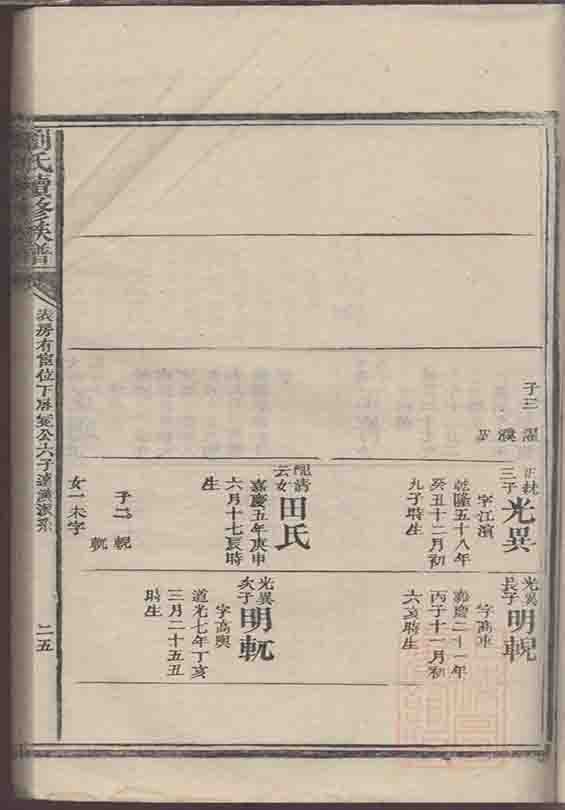 子三
濯
濮
正
正桄三子
光異
字江濱
乾隆五十八年
癸丑十二月初
九子時生
配清云女
田氏
嘉慶五年庚申
六月十七辰時
生
子二
輗
軏
女一未字
光異長子
明輗
字高車
嘉慶二十一年
丙子十一月初
六亥時生
光異次子
明軏
字高輿
道光七年丁亥
三月二十五丑
時生
劉氏續修族譜
房有宦位下
公六子達
派系
二五